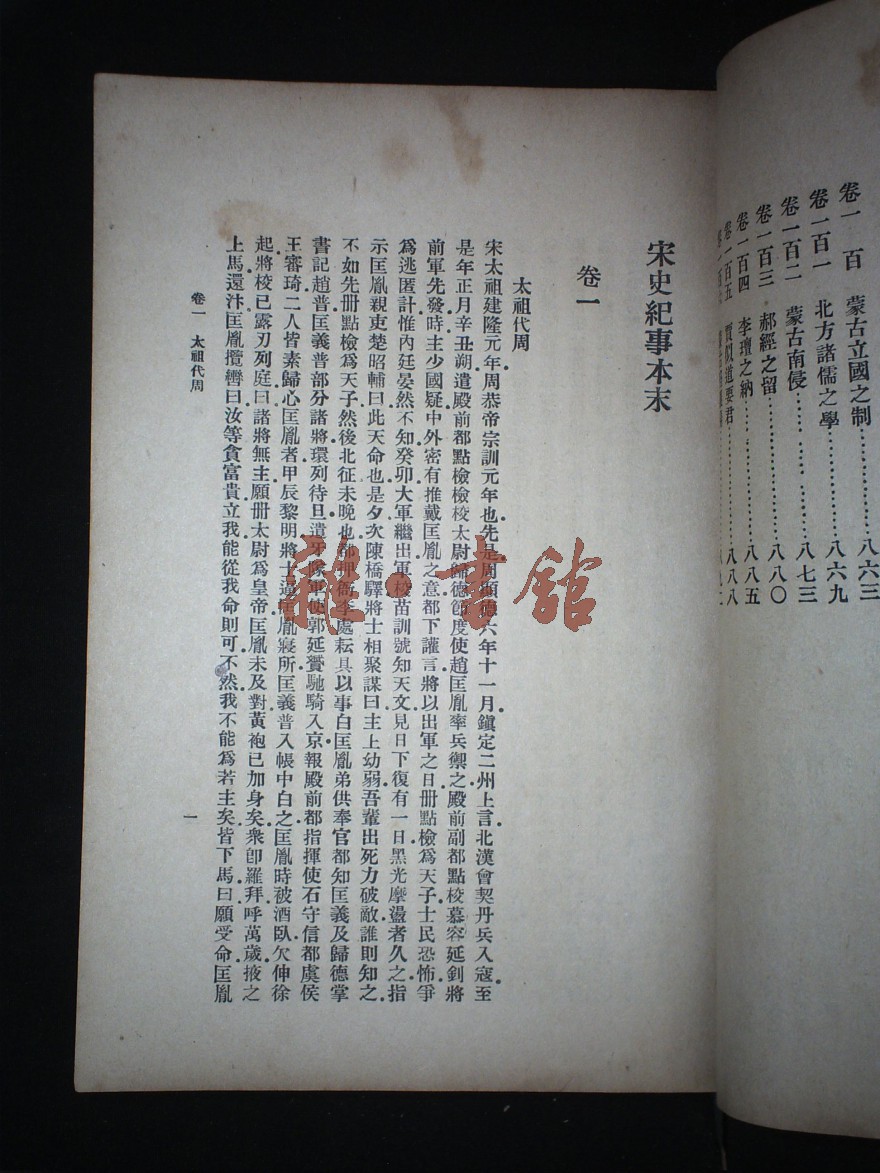 卷一百 蒙古立國之制………八六三
卷一百一 北方諸儒之學………八六九
卷一百二 蒙古南侵………八七三
卷一百三 郝經之留………八八〇
卷一百四 李璮之納………八八五
卷一百五 賈似道要君………八八八
宋史紀事本末
卷一
太祖代周
宋太祖建隆元年周恭帝宗訓元年也先是周顯德六年十一月鎮定二州上言北漢會契丹兵入寇至
是年正月辛丑朔遣殿前都點檢檢校太尉歸德節度使趙匡胤率兵禦之殿前副都點校慕容延釗將
前軍先發時主少國疑中外密有推戴匡胤之意都下讙言將以出軍之日册點檢爲天子士民恐怖爭
爲逃匿計惟內廷晏然不知癸卯大軍繼出軍校苗訓號知天文見日下復有一日黑光摩盪者久之指
示匡胤親吏楚昭輔曰此天命也是夕次陳橋驛將士相聚謀曰主上幼弱吾輩出死力破敵誰則知之
不如先册點檢爲天子然後北征未晚也都押衙李處耘具以事白匡胤弟供奉官都知匡義及歸德掌
書記趙普匡義普部分諸將環列待旦遣牙隊軍使郭延贇馳騎入京報殿前都指揮使石守信都虞侯
王審琦二人皆素歸心匡胤者甲辰黎明將士逼匡胤寢所匡義普入帳中白之匡胤時被酒臥欠伸徐
起將校已露刃列庭曰諸將無主願册太尉爲皇帝匡胤未及對黃袍已加身矣衆卽羅拜呼萬歲掖之
上馬還汴匡胤攬轡曰汝等貪富貴立我能從我命則可不然我不能爲若主矣皆下馬曰願受命匡胤
卷一 太祖代周
一
雜·書館